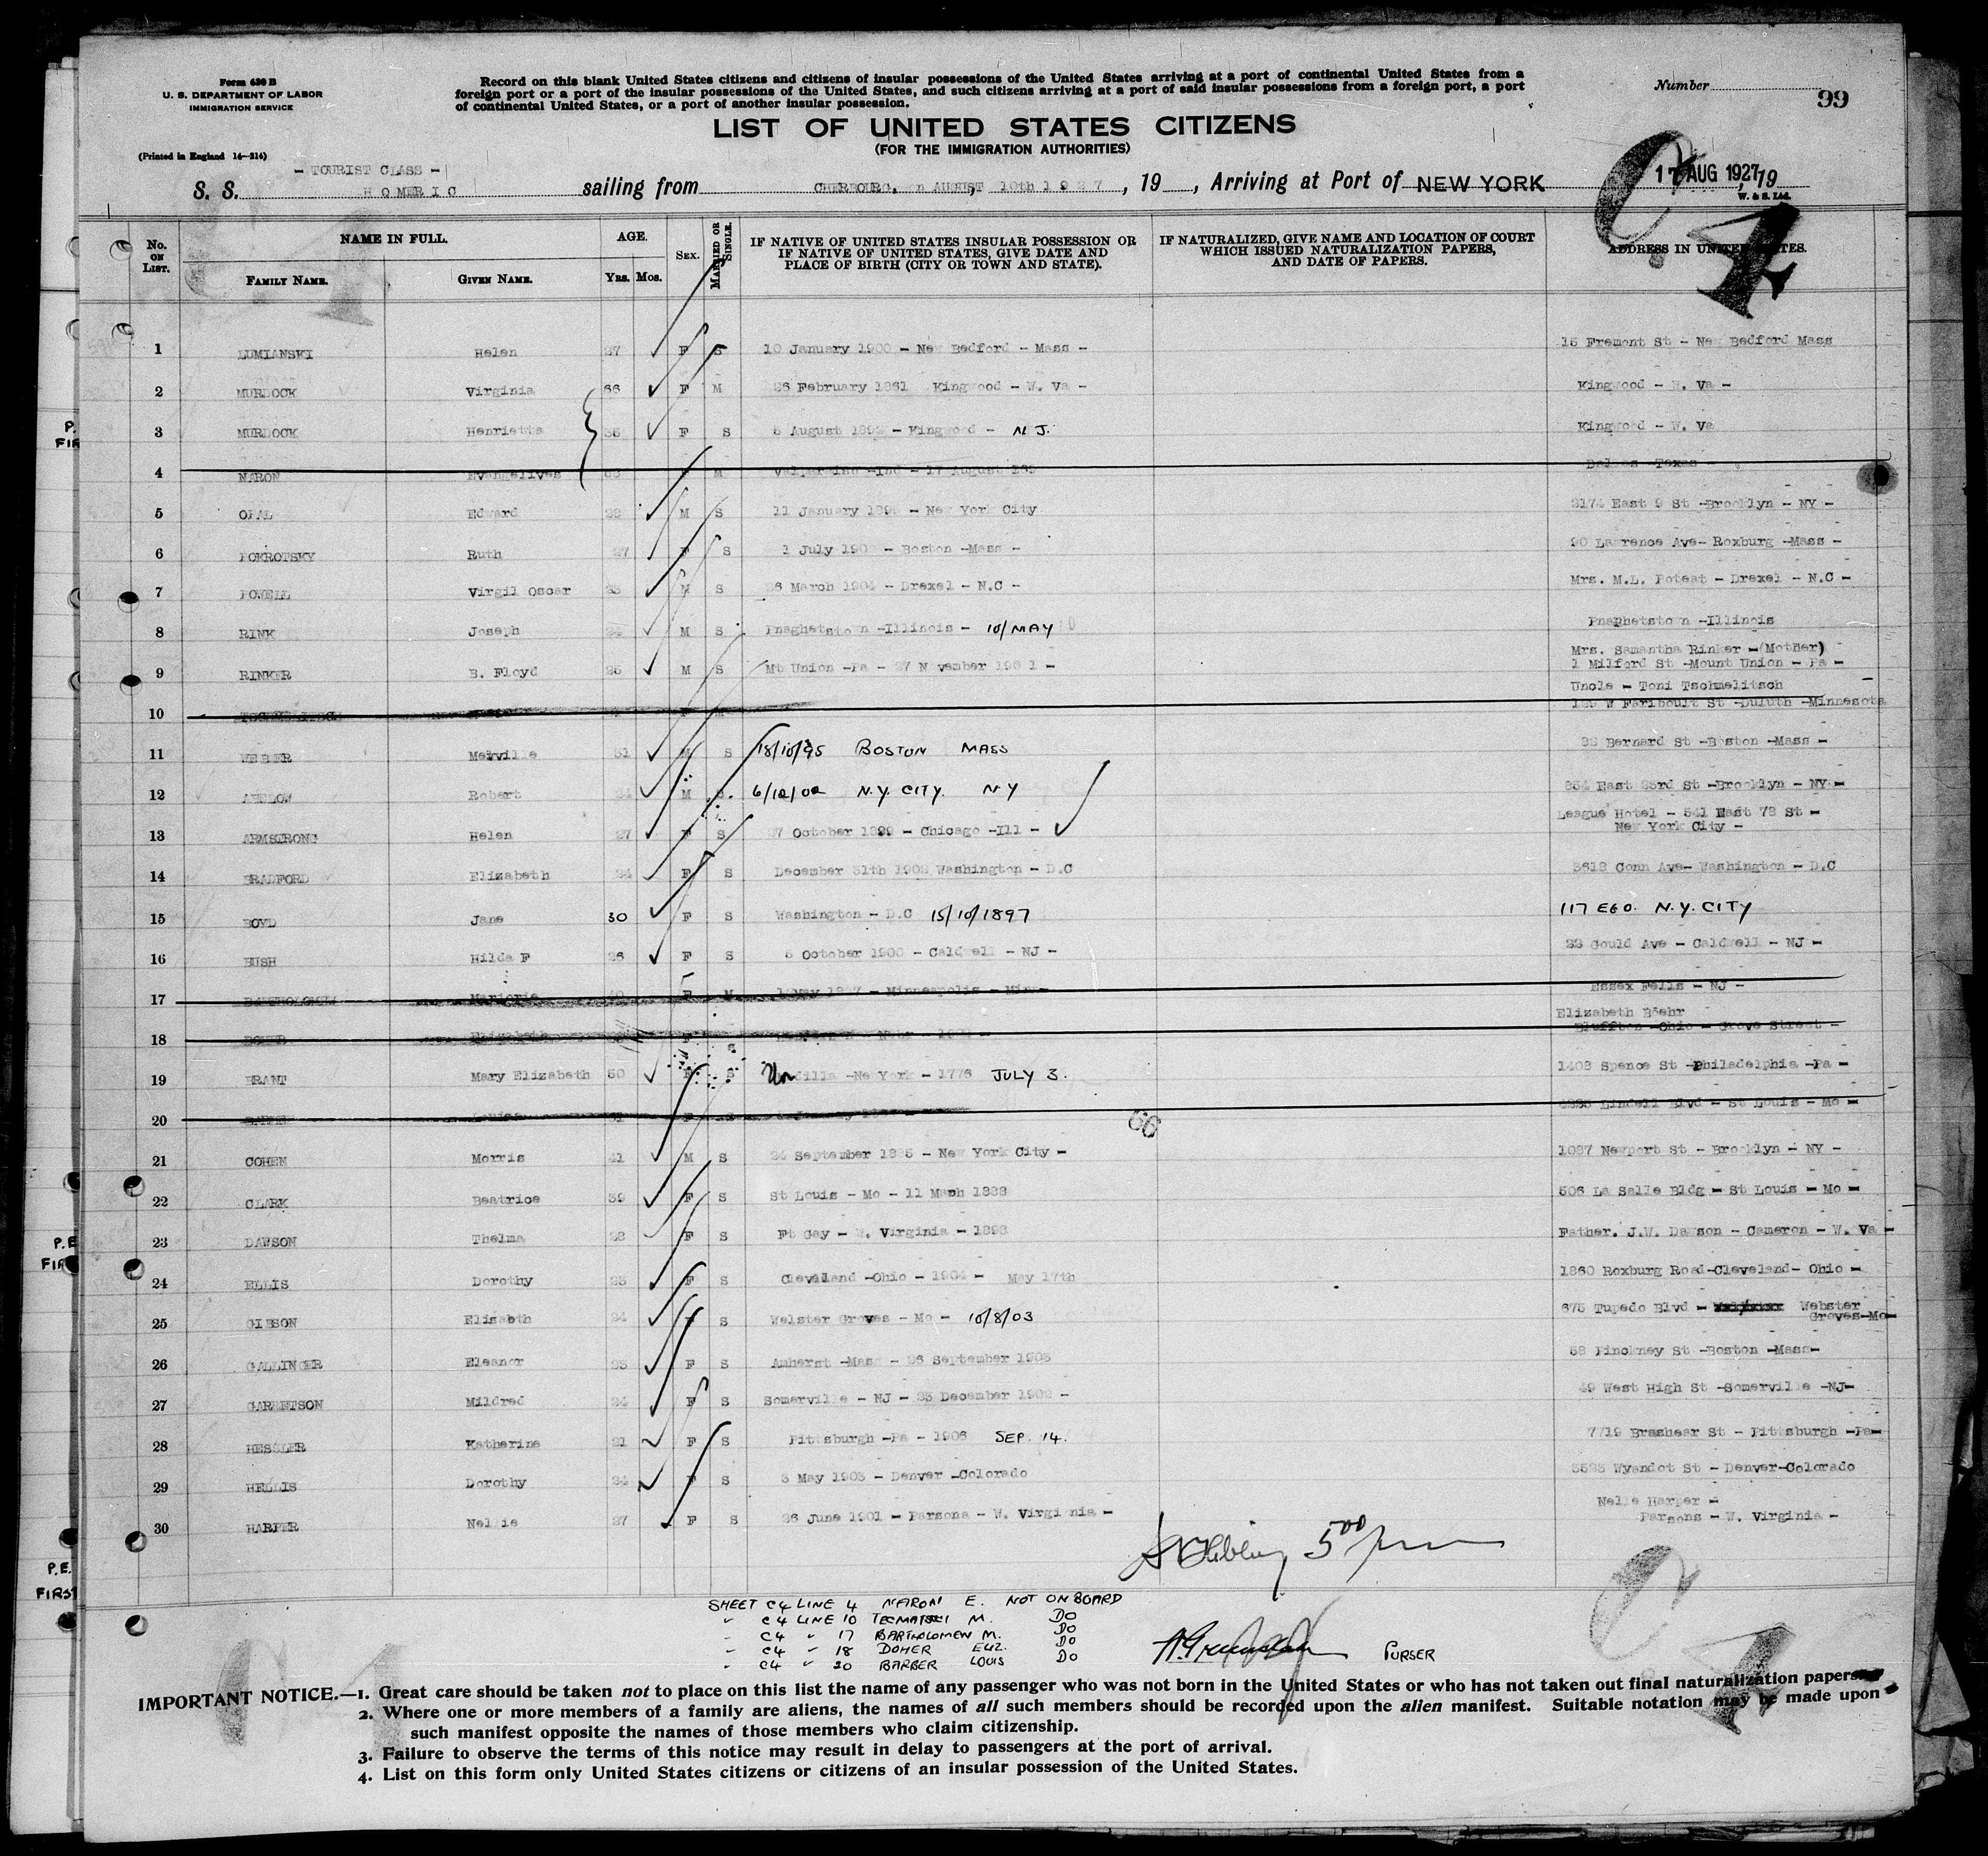 Form 630 B
U. S. DEPARTMENT OF LABOR
IMMIGRATION SERVICE
(Printed in England 14—214)
Record on this blank United States citizens and citizens of insular possessions of the United States arriving at a port of continental United States from a
foreign port or a port of the insular possessions of the United States, and such citizens arriving at a port of said insular possessions from a foreign port, a port
of continental United States, or a port of another insular possession.
Number
99
LIST OF UNITED STATES CITIZENS
(FOR THE IMMIGRATION AUTHORITIES)
- TOURIST CLASS -
S. S. HOMERIC sailing from CHERBOURG, on AUGUST, 10th 1927, 19 , Arriving at Port of NEW YORK 17 AUG 1927, 19
W. & S. Ltd.
C4
No. ON LIST. NAME IN FULL. FAMILY NAME. GIVEN NAME. AGE. YRS. MOS. SEX. MARRIED OR SINGLE.
IF NATIVE OF UNITED STATES INSULAR POSSESSION OR
IF NATIVE OF UNITED STATES, GIVE DATE AND
PLACE OF BIRTH (CITY OR TOWN AND STATE).
IF NATURALIZED, GIVE NAME AND LOCATION OF COURT
WHICH ISSUED NATURALIZATION PAPERS,
AND DATE OF PAPERS.
ADDRESS IN UNITED STATES.
1 LUMIANSKI Helen 27 F S 10 January 1900 - New Bedford - Mass - 15 Fremont St - New Bedford Mass
2 MURDOCK Virginia 66 F M 26 February 1861 Kingwood - W. Va - Kingwood - W. Va -
3 MURDOCK Henrietta 35 F S 5 August 1892 - Kingwood - N.J. Kingwood - W. Va
4 NARON Evangelives M Valparaiso -Ind - 17 August Dallas -Texas -
5 OPAL Edward 28 M S 11 January - New York City 2174 East 9 St -Brooklyn - NY -
6 POKROTSKY Ruth 27 F S 1 July - Boston -Mass - 90 Lawrence Ave- Roxburg -Mass -
7 POWELL Virgil Oscar 23 M S 26 March 1904 - Drexel - N.C - Mrs. M.L. Poteat - Drexel - N.C -
8 RINK Joseph M S Pnaghetstown -Illinois - 10/MAY Pnaphetstown -Illinois
9 RINKER B. Floyd 25 M S Mt Union -Pa - 27 November 1901 - Mrs. Samantha Rinker -(Mother)
1 Milford St -Mount Union - Pa -
10 Uncle - Toni Tschmelitsch
W Faribault St -Duluth -Minnesota
11 WEBBER Melville 31 M S 18/10/95 BOSTON MASS Bernard St -Boston -Mass -
12 ABELOW Robert 24 M S. 6/12/02 N.Y. CITY. N Y 854 East 83rd St -Brooklyn - NY -
13 ARMSTRONG Helen 27 F S 27 October 1899 - Chicago -Ill - League Hotel - 541 East 78 St -
New York City -
14 BRADFORD Elizabeth 24 F S December 31th 1902 Washington - D.C 3612 Conn Ave- Washington - D.C
15 BOYD Jane 30 F S Washington - D.C 15/10/1897 117 E60. N.Y. CITY
16 BUSH Hilda F 26 F S 5 October 1900 - Caldwell - NJ - Gould Ave - Caldwell - NJ -
17 BARTHOLOMEW Marjorie F M May - Minneapolis - Minn- Essex Fells - NJ -
18 Elizabeth F Elizabeth Böehr
Bluffton -Ohio - Grove Street -
19 BRANT Mary Elizabeth 50 F S Unadilla -New York - 1776 JULY 3. 1408 Spence St -Philadelphia -Pa -
20 F Lindell Blvd - St Louis - Mo -
21 COHEN Morris 41 M S 24 September 1885 - New York City - 1087 Newport St - Brooklyn - NY -
22 CLARK Beatrice 39 F S St Louis - Mo - 11 March 1888 506 La Salle Bldg - St Louis - Mo -
23 DAWSON Thelma 28 F S Ft Gay - W. Virginia - 1898 Father. J.W. Dawson - Cameron - W. Va -
24 ELLIS Dorothy 23 F S Cleveland -Ohio - 1904 - May 17th 1860 Roxburg Road-Cleveland- Ohio -
25 GIBSON Elizabeth 24 F S Welster Groves - Mo - 10/8/03 675 Tupedo Blvd - Webster
Groves-Mo-
26 GALLINGER Eleanor 23 F S Amherst -Mass - 26 September 1903 58 Pinckney St -Boston -Mass-
27 GARRETSON Mildred 24 F S Somerville - NJ - 23 December 1902 - 49 West High St -Somerville -NJ-
28 HESSLER Katherine 21 F S Pittsburgh -Pa - 1906 SEP. 14. 7719 Brashear St - Pittsburgh -Pa-
29 HELLIS Dorothy 24 F S 3 May 1903 - Denver -Colorado 3525 Wyandot St - Denver-Colorado
30 HARPER Nellie 27 F S 26 June 1901 - Parsons - W. Virginia - Nelle Harper -
Parsons - W. Virginia -
66
5 00 pm
SHEET C4 LINE 4 NARON E. NOT ON BOARD
" C4 LINE 10 M. DO
" C4 " 17 BARTHOLOMEW M. DO
" C4 " 18 DOHER ELIZ. DO
" C4 " 20 BARBER LOUIS DO
PURSER
C4
C4
IMPORTANT NOTICE.—1. Great care should be taken not to place on this list the name of any passenger who was not born in the United States or who has not taken out final naturalization papers.
2. Where one or more members of a family are aliens, the names of all such members should be recorded upon the alien manifest. Suitable notation may be made upon
such manifest opposite the names of those members who claim citizenship.
3. Failure to observe the terms of this notice may result in delay to passengers at the port of arrival.
4. List on this form only United States citizens or citizens of an insular possession of the United States.
P.
FIR
P.E
FIR
P.E.
FIRST